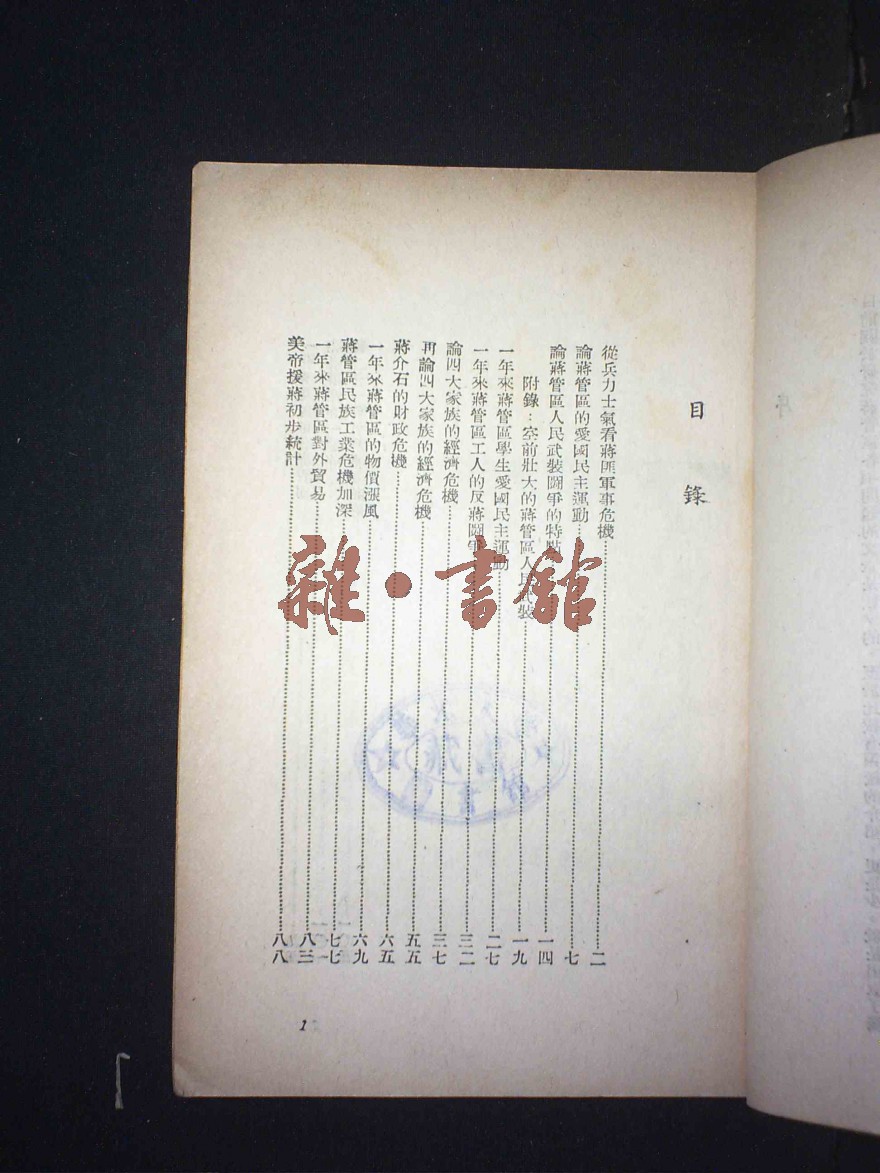 目錄
從兵力士氣看蔣匪軍事危機……二
論蔣管區的愛國民主運動……七
論蔣管區人民武裝鬪爭的特點……一四
附錄：空前壯大的蔣管區人民武裝……一九
一年來蔣管區學生愛國民主運動……二七
一年來蔣管區工人的反蔣鬪爭……三二
論四大家族的經濟危機……三七
再論四大家族的經濟危機……五五
蔣介石的財政危機……六五
一年來蔣管區的物價漲風……六九
蔣管區民族工業危機加深……七七
一年來蔣管區對外貿易……八三
美帝援蔣初步統計……八八
1
雜·書舘